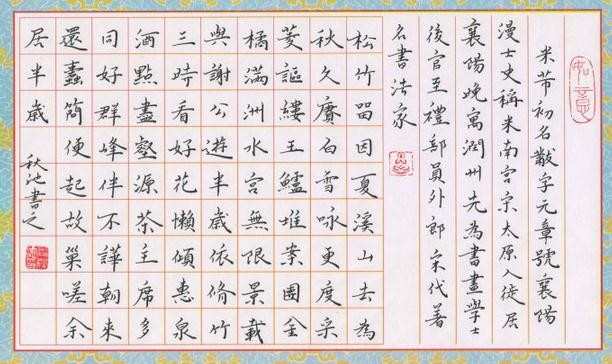 如意
米芾初名黻字元章號襄陽
漫士史稱米南宮宗太原人徙居
襄陽晚寓潤州先為書畫學士
後官至禮部員外郎宋代著
名書法家
松竹留因夏溪山去為
秋久賡白雪詠更度采
菱謳縷玉鱸堆案團金
橘滿洲水宮無限景載
與謝公遊半歲依脩竹
三時看好花懶傾惠泉
酒點盡壑源茶主席多
同好群峰伴不譁朝來
還蠹簡便起故巢嗟余
居半歲
秋池書之